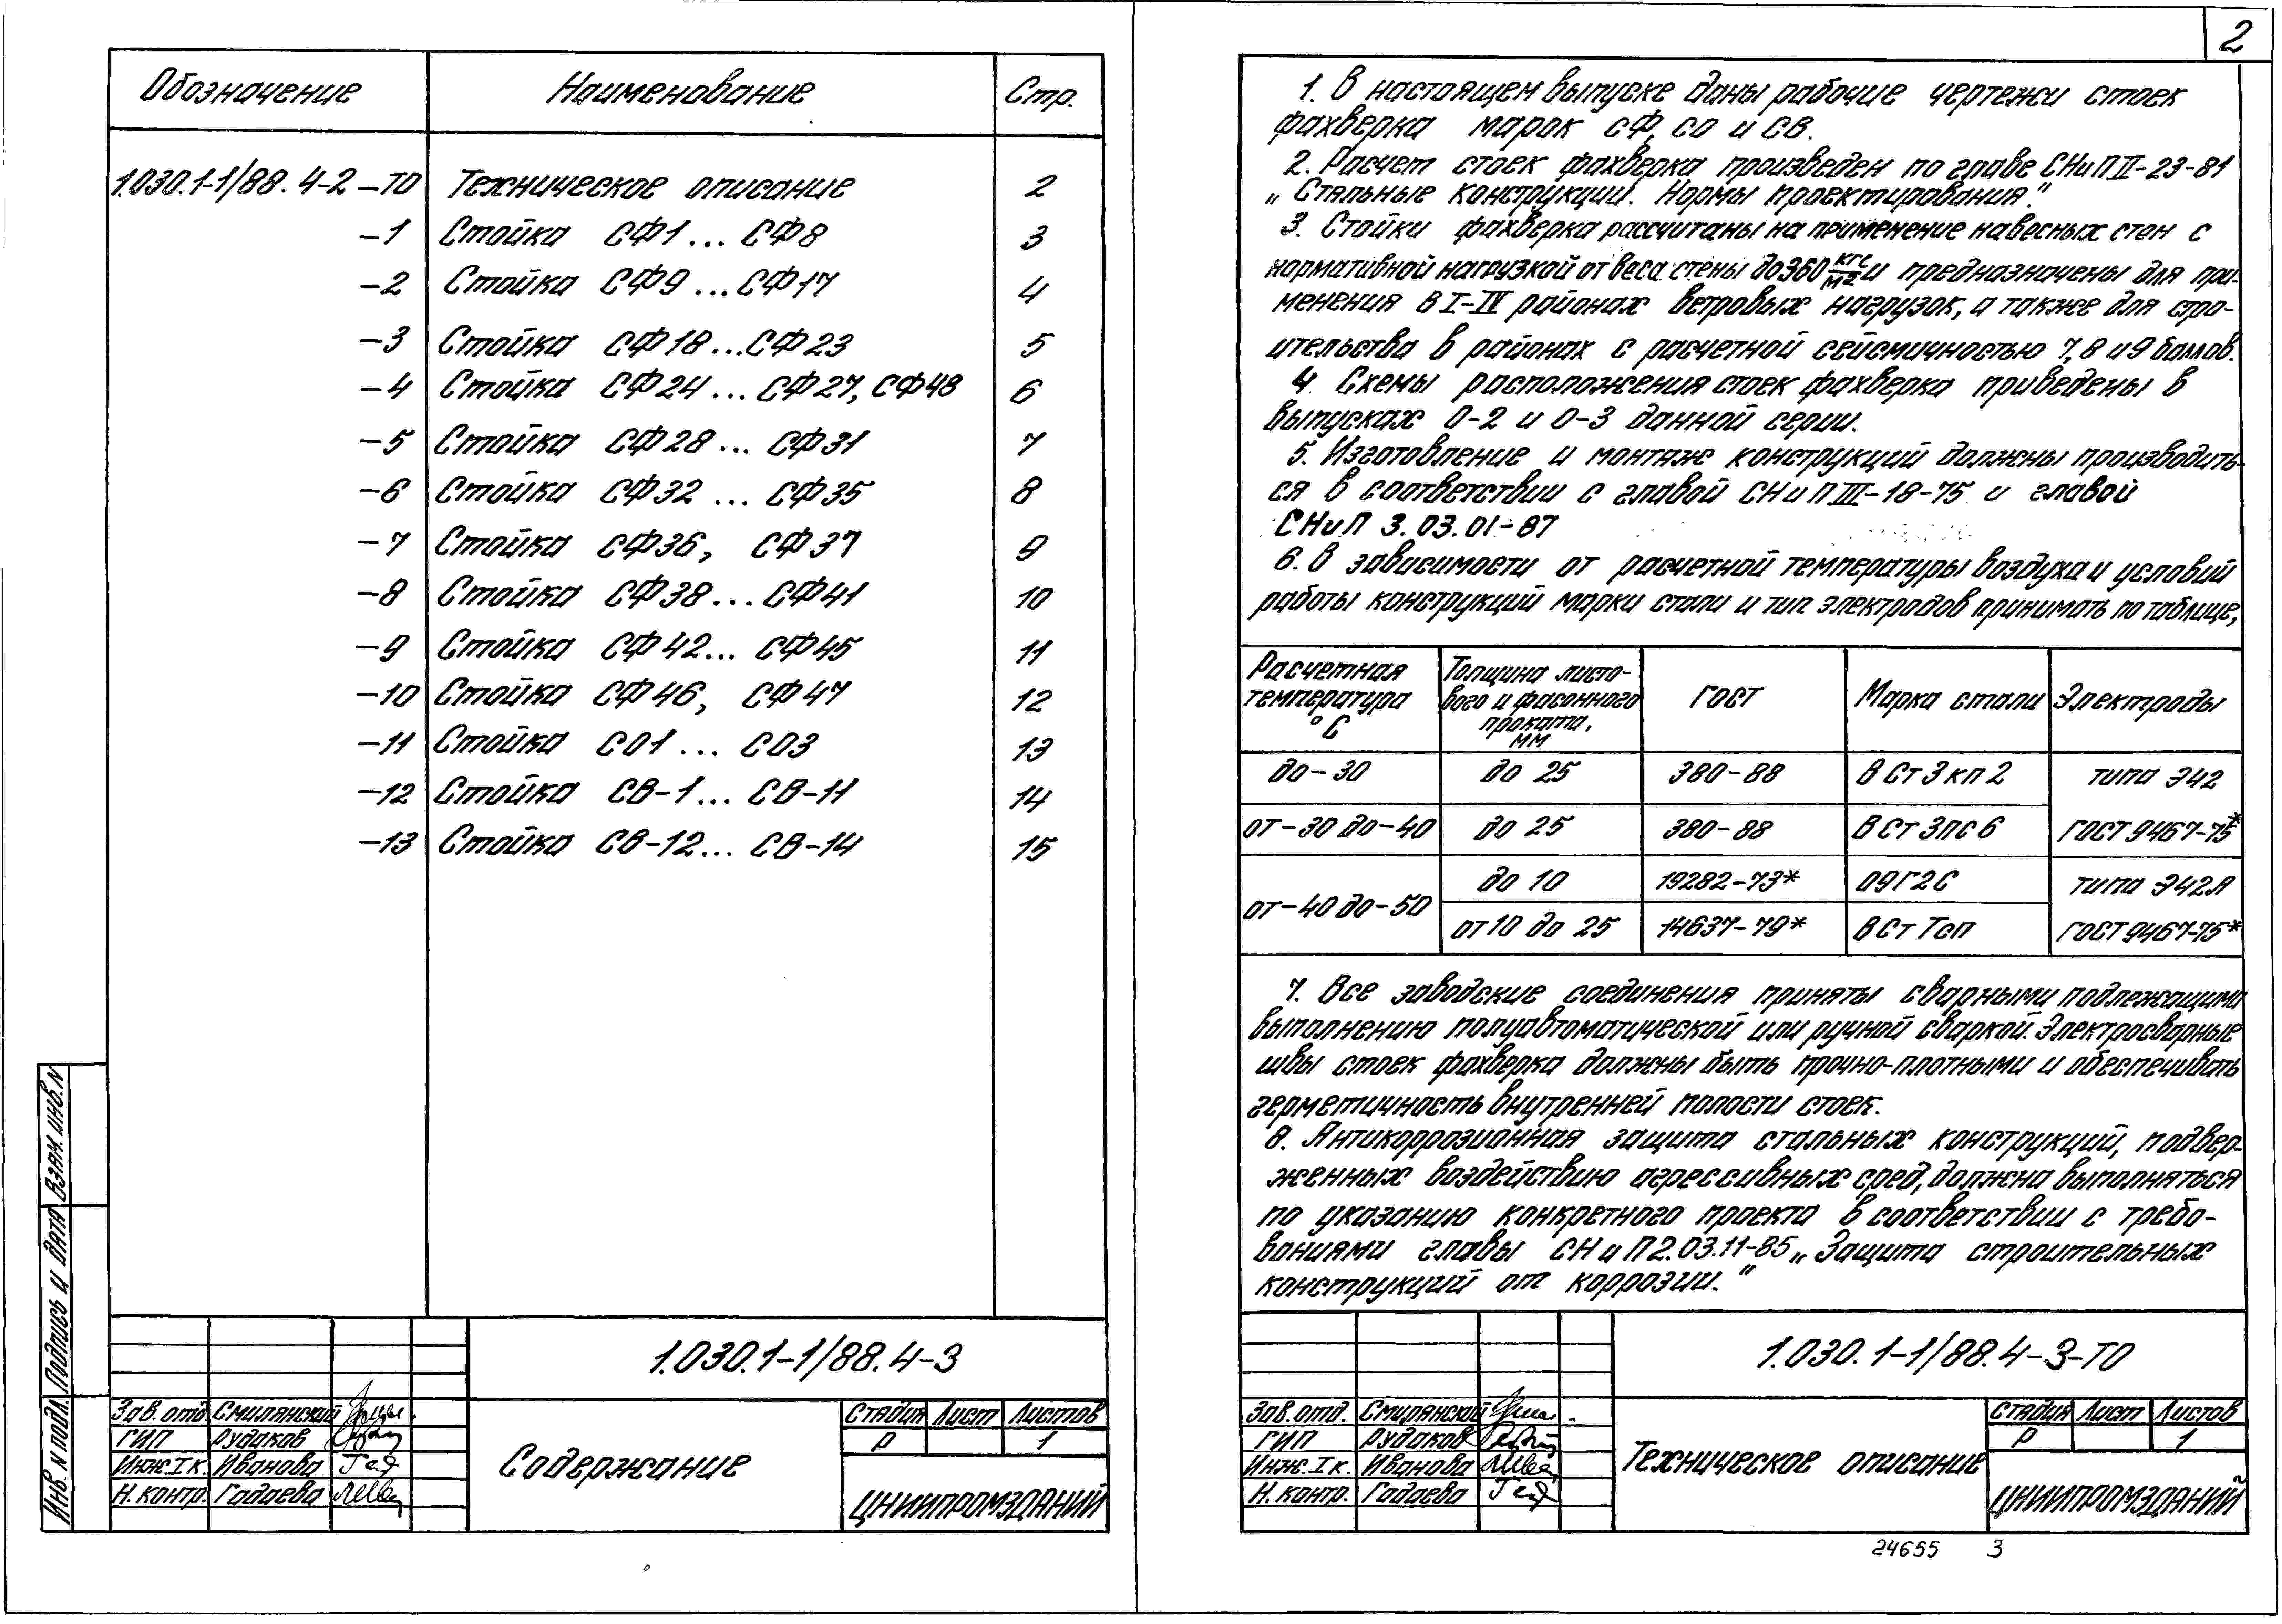 Обозначение Наименование Стр.
1.030.1-1/88.4-2-ТО Техническое описание 2
-1 Стойка СФ1...СФ8 3
-2 Стойка СФ9...СФ17 4
-3 Стойка СФ18...СФ23 5
-4 Стойка СФ24...СФ27, СФ48 6
-5 Стойка СФ28...СФ31 7
-6 Стойка СФ32...СФ35 8
-7 Стойка СФ36, СФ37 9
-8 Стойка СФ38...СФ41 10
-9 Стойка СФ42...СФ45 11
-10 Стойка СФ46, СФ47 12
-11 Стойка СО1...СО3 13
-12 Стойка СВ-1...СВ-11 14
-13 Стойка СВ-12...СВ-14 15
Взам. инв. N
Подпись и дата
Инв. N подл.
1.030.1-1/88.4-3
Зав. отд. Смилянский
ГИП Рудаков
Инж. I к. Иванова
Н. контр. Гадаева
Содержание
Стадия Лист Листов
Р 1
ЦНИИПРОМЗДАНИЙ
2
1. В настоящем выпуске даны рабочие чертежи стоек
фахверка марок СФ, СО и СВ.
2. Расчет стоек фахверка произведен по главе СНиП II-23-81
„Стальные конструкции. Нормы проектирования."
3. Стойки фахверка рассчитаны на применение навесных стен с
нормативной нагрузкой от веса стены до 360 кгс/м2 и предназначены для при-
менения в I-IV районах ветровых нагрузок, а также для стро-
ительства в районах с расчетной сейсмичностью 7,8 и 9 баллов.
4. Схемы расположения стоек фахверка приведены в
выпусках 0-2 и 0-3 данной серии.
5. Изготовление и монтаж конструкций должны производить-
ся в соответствии с главой СНиП III-18-75 и главой
СНиП 3.03.01-87
6. В зависимости от расчетной температуры воздуха и условий
работы конструкций марки стали и тип электродов принимать по таблице,
Расчетная температура °С Толщина листо-вого и фасонного проката, мм ГОСТ Марка стали Электроды
до-30 до 25 380-88 ВСт3кп2 типа Э42
от-30 до-40 до 25 380-88 ВСт3пс6 ГОСТ 9467-75*
от-40 до-50 до 10 19282-73* 09Г2С типа Э42А
от 10 до 25 14637-79* ВСтТсп ГОСТ 9467-75*
7. Все заводские соединения приняты сварными подлежащими
выполнению полуавтоматической или ручной сваркой. Электросварные
швы стоек фахверка должны быть прочно-плотными и обеспечивать
герметичность внутренней полости стоек.
8. Антикоррозионная защита стальных конструкций, подвер-
женных воздействию агрессивных сред, должна выполняться
по указанию конкретного проекта в соответствии с требо-
ваниями главы СНиП 2.03.11-85 „Защита строительных
конструкций от коррозии."
1.030.1-1/88.4-3-ТО
Зав. отд. Смилянский
ГИП Рудаков
Инж. I к. Иванова
Н. контр. Гадаева
Техническое описание
Стадия Лист Листов
Р 1
ЦНИИПРОМЗДАНИЙ
24655 3